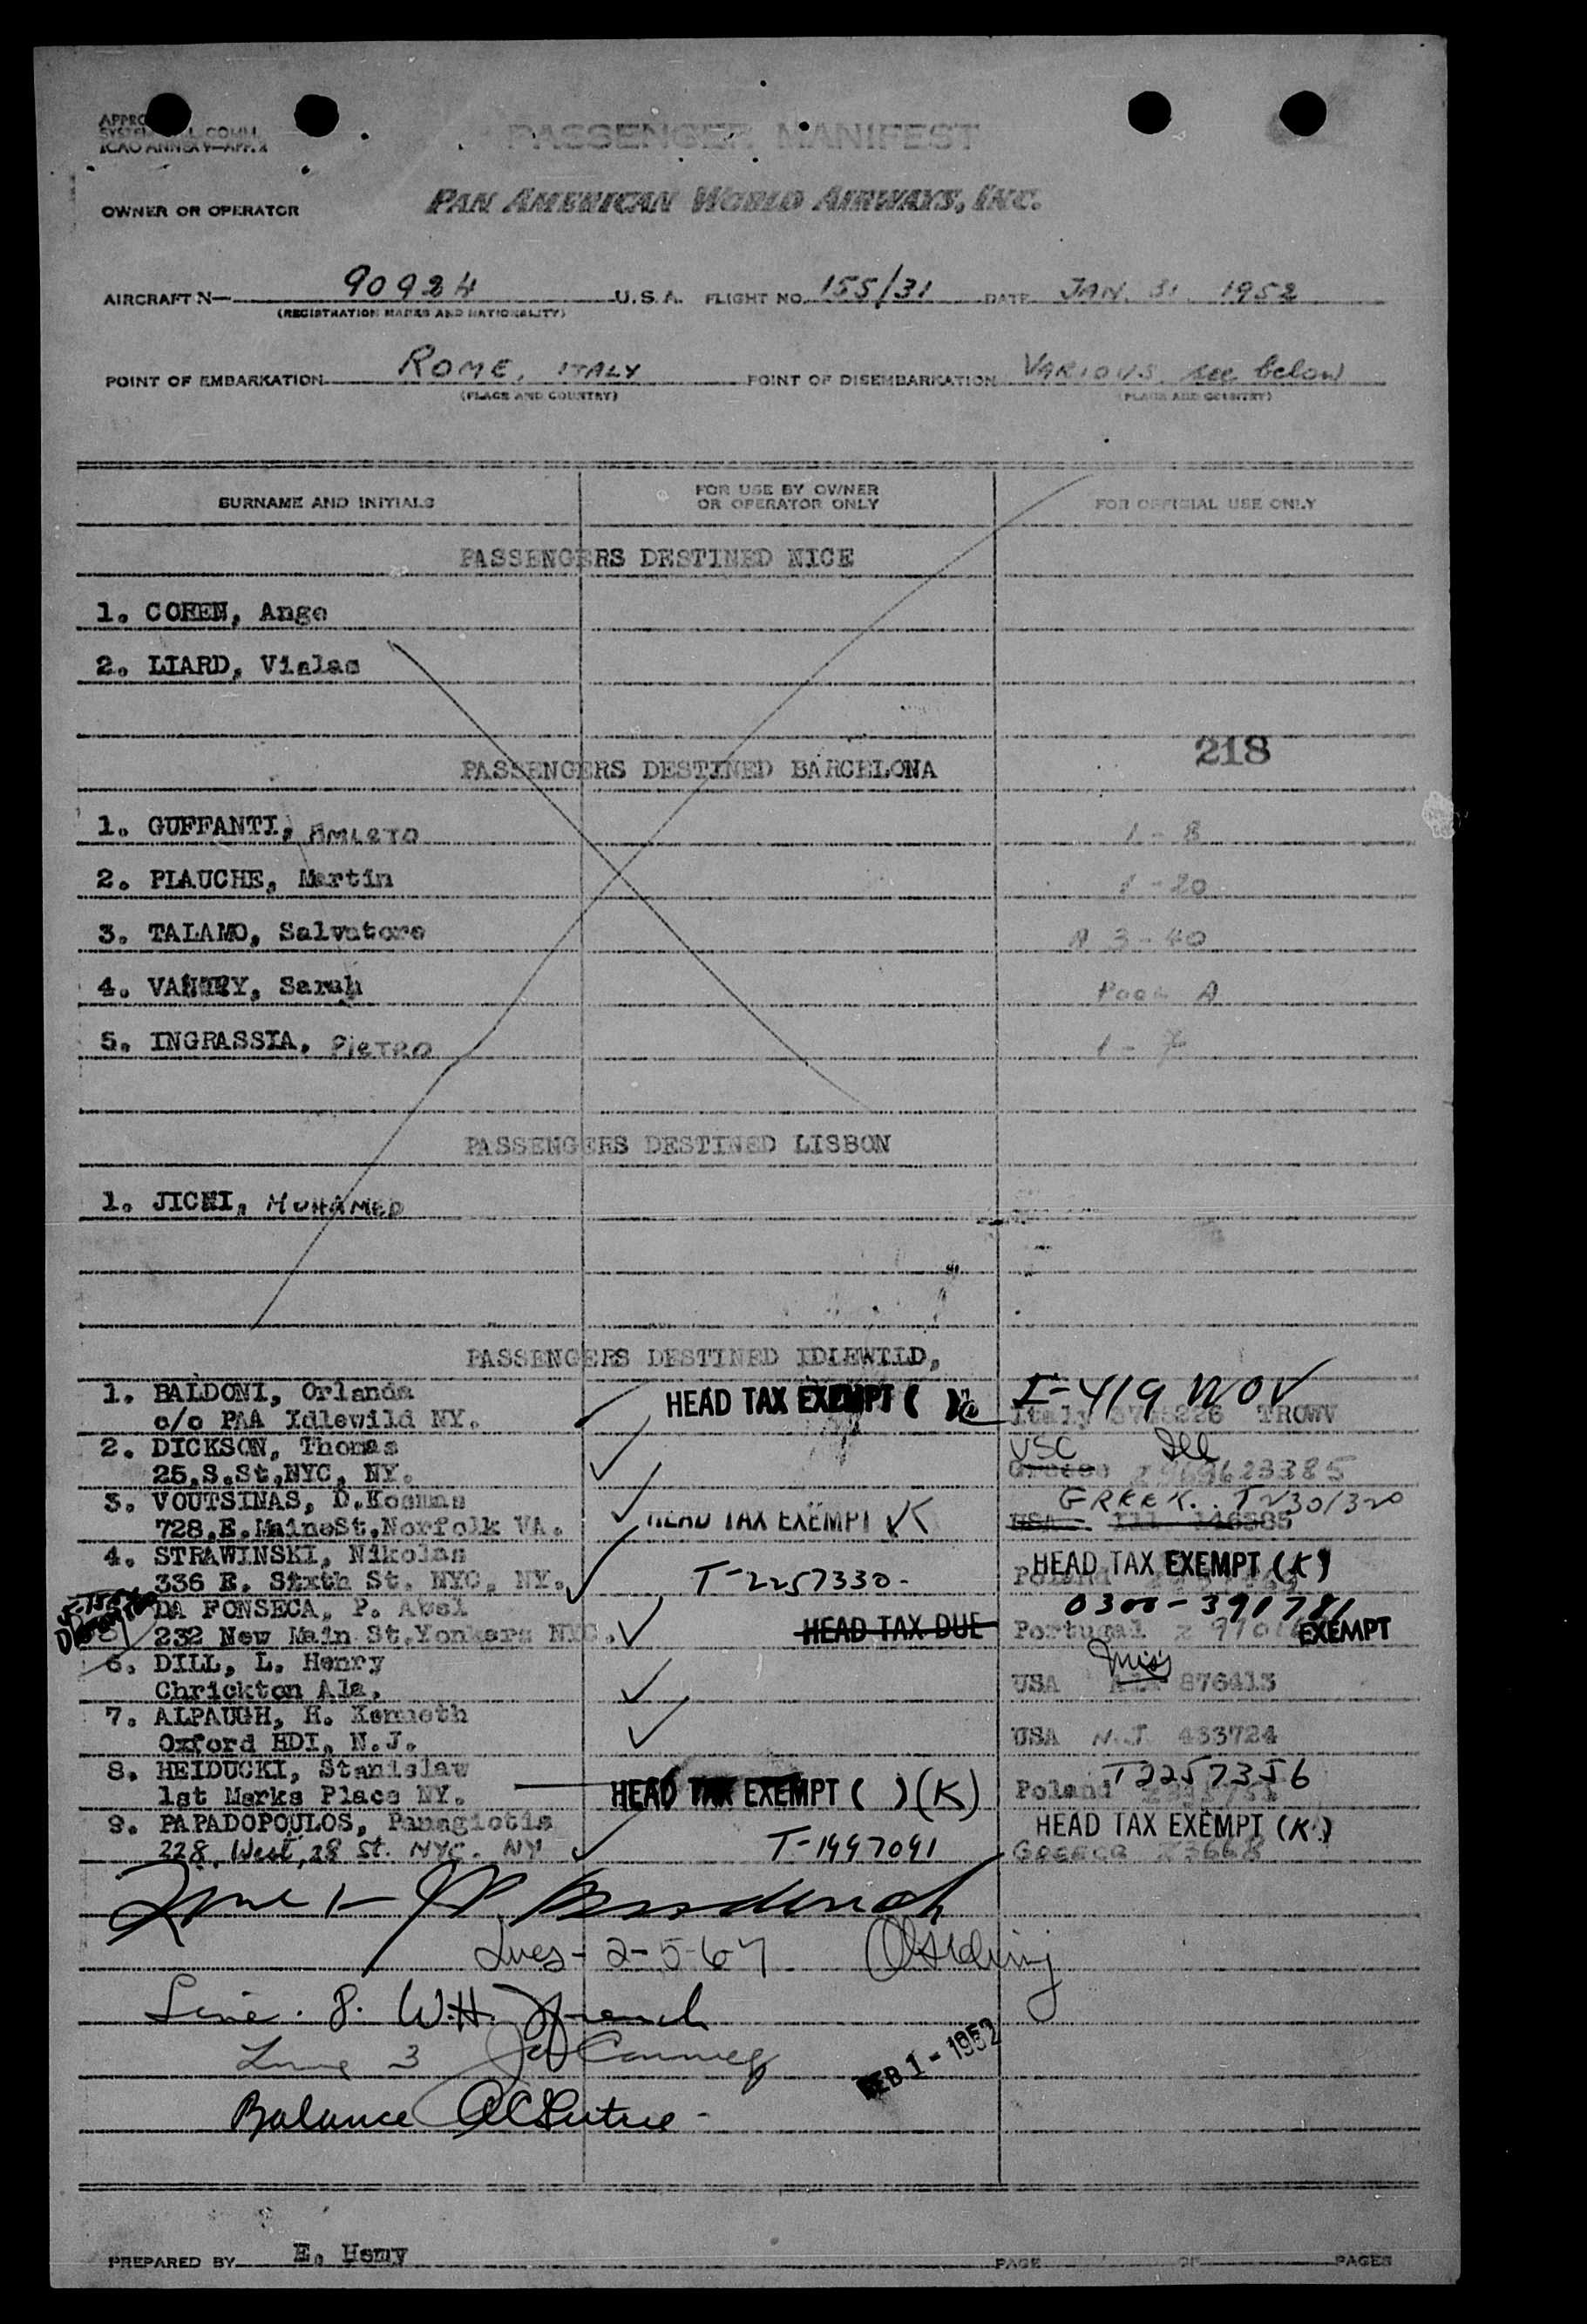 PASSENGER MANIFEST
ICAO ANNEX 9—APP. 2
OWNER OR OPERATOR PAN AMERICAN WORLD AIRWAYS, INC.
AIRCRAFT N— 90924 U.S.A. FLIGHT NO. 155/31 DATE JAN. 31. 1952
(REGISTRATION MARKS AND NATIONALITY)
POINT OF EMBARKATION ROME, ITALY POINT OF DISEMBARKATION VARIOUS see below
(PLACE AND COUNTRY) (PLACE AND COUNTRY)
SURNAME AND INITIALS FOR USE BY OWNER OR OPERATOR ONLY FOR OFFICIAL USE ONLY
PASSENGERS DESTINED NICE
1. COHEN, Ange
2. LIARD, Vialas
218
PASSENGERS DESTINED BARCELONA
1. GUFFANTI, AMLETO 1 - 8
2. PLAUCHE, Martin 1 - 20
3. TALAMO, Salvatore 3 - 40
4. Sarah A
5. INGRASSIA, PIETRO 1 - 7
PASSENGERS DESTINED LISBON
1. JICHI, MOHAMED
PASSENGERS DESTINED IDLEWILD,
1. BALDONI, Orlanda HEAD TAX EXEMPT ( ) I-419 NOV
c/o PAA Idlewild NY. Italy TROWV
2. DICKSON, Thomas USC
25.S.St.NYC, NY. Greece
3. VOUTSINAS, D.Kosmas GREEK. T2301320
728.E.MaineSt.Norfolk VA. HEAD TAX EXEMPT K USA Ill 146585
4. STRAWINSKI, Nikolas HEAD TAX EXEMPT (K)
336 E. Sixth St. NYC, NY. T-2257330- Poland
DA FONSECA, P. Abel 0300-391781
232 New Main St.Yonkers NYC. HEAD TAX DUE Portugal EXEMPT
6. DILL, L. Henry Miss
Chrickton Ala. USA 876413
7. ALPAUGH, H. Kenneth
Oxford HDI, N.J. USA N.J. 433724
8. HEIDUCKI, Stanislaw T2257356
1st Marks Place NY. HEAD TAX EXEMPT ( ) (K) Poland
9. PAPADOPOULOS, Panagiotis HEAD TAX EXEMPT (K)
228, West, 28 St. NYC. NY T-1997091 Greece
Lines - 2-5-6-7
Line. 8. W.H. French
Line 3
FEB 1 - 1952
Balance
PREPARED BY E. Hemy PAGE OF PAGES